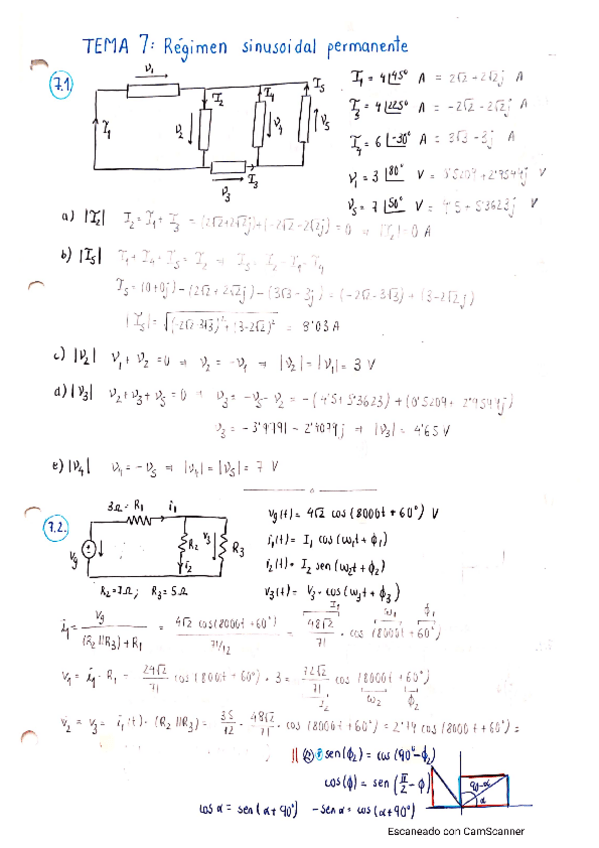 TEMA 7: Régimen sinusoidal permanente
7.1
V₁
I₁ I₂ V₂ V₃ I₃ I₄ V₄ I₅ V₅
I₁ = 4 |45° A = 2√2 - 2√2j A
I₃ = 4 |225° A = -2√2 - 2√2j A
I₄ = 6 |-30° A = 3√3 - 3j A
V₁ = 3 |80° V = 0'5209 + 2'9544j V
V₅ = 7 |50° V = 4'5 + 5'3623j V
a) |I₂| I₂ = I₁ + I₃ = (2√2+2√2j)+(-2√2-2√2j) = 0 ⇒ |I₂| = 0 A
b) |I₅| I₁ + I₄ + I₅ = I₂ ⇒ I₅ = I₂ - I₁ - I₄
I₅ = (0+0j) - (2√2 + 2√2j) - (3√3 - 3j) = (-2√2 - 3√3) + (3-2√2j)
|I₅| = √(-2√2-3√3)² + (3-2√2)² = 8'03 A
c) |V₂| V₁ + V₂ = 0 ⇒ V₂ = -V₁ ⇒ |V₂| = |V₁| = 3 V
d) |V₃| V₂ + V₃ + V₅ = 0 ⇒ V₃ = -V₅ - V₂ = -(4'5 + 5'3623) + (0'5209 + 2'9544j)
V₃ = -3'9791 - 2'4079j ⇒ |V₃| = 4'65 V
e) |V₄| V₄ = -V₅ ⇒ |V₄| = |V₅| = 7 V
7.2.
3Ω = R₁ i₁
Vg R₂ i₂ V₃ R₃
R₂ = 7Ω; R₃ = 5Ω
vg(t) = 4√2 cos (8000t + 60°) V
i₁(t) = I₁ cos (ω₁t + ϕ₁)
i₂(t) = I₂ sen (ω₂t + ϕ₂)
v₃(t) = V₃ · cos (ω₃t + ϕ₃)
i₁ = Vg / (R₂ || R₃) + R₁ = 4√2 cos(8000t + 60°) / 71/12 = 48√2/71 · cos (8000t + 60°)
I₁ ω₁ ϕ₁
V₁ = i₁ · R₁ = 24√2/71 · cos (8000t + 60°) · 3 = 72√2/71 cos (8000t + 60°)
I₂ ω₂ ϕ₂
V₂ = V₃ = i₁(t) · (R₂ || R₃) = 35/12 · 48√2/71 · cos (8000t + 60°) = 2'79 cos (8000t + 60°) =
sen (ϕ₂) = cos (90° - ϕ₂)
cos (ϕ) = sen (π/2 - ϕ)
90-α
α
cos α = sen (α + 90°) -sen α = cos (α + 90°)
Escaneado con CamScanner